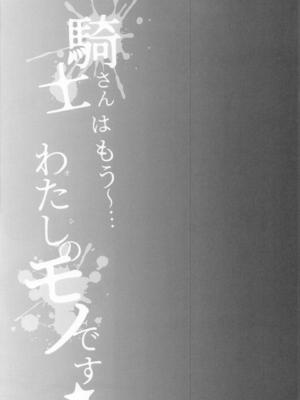 騎士さんはもう～…
わたしのモノです★